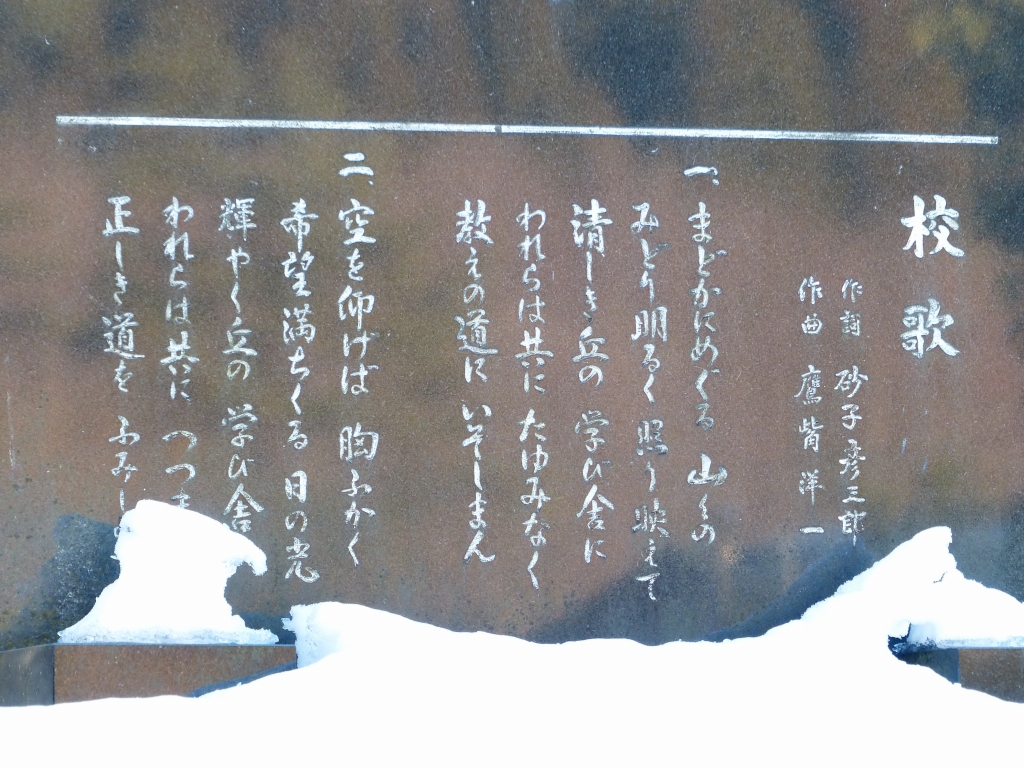 校歌
作詞 砂子彦三郎
作曲 鷹觜洋一
一、まどかにめぐる 山々の
みどり明るく 照り映えて
清しき丘の 学び舎に
われらは共に たゆみなく
教えの道に いそしまん
二、空を仰げば 胸ふかく
希望満ちくる 日の光
輝やく丘の 学び舎
われらは共に つつま
正しき道を ふみし